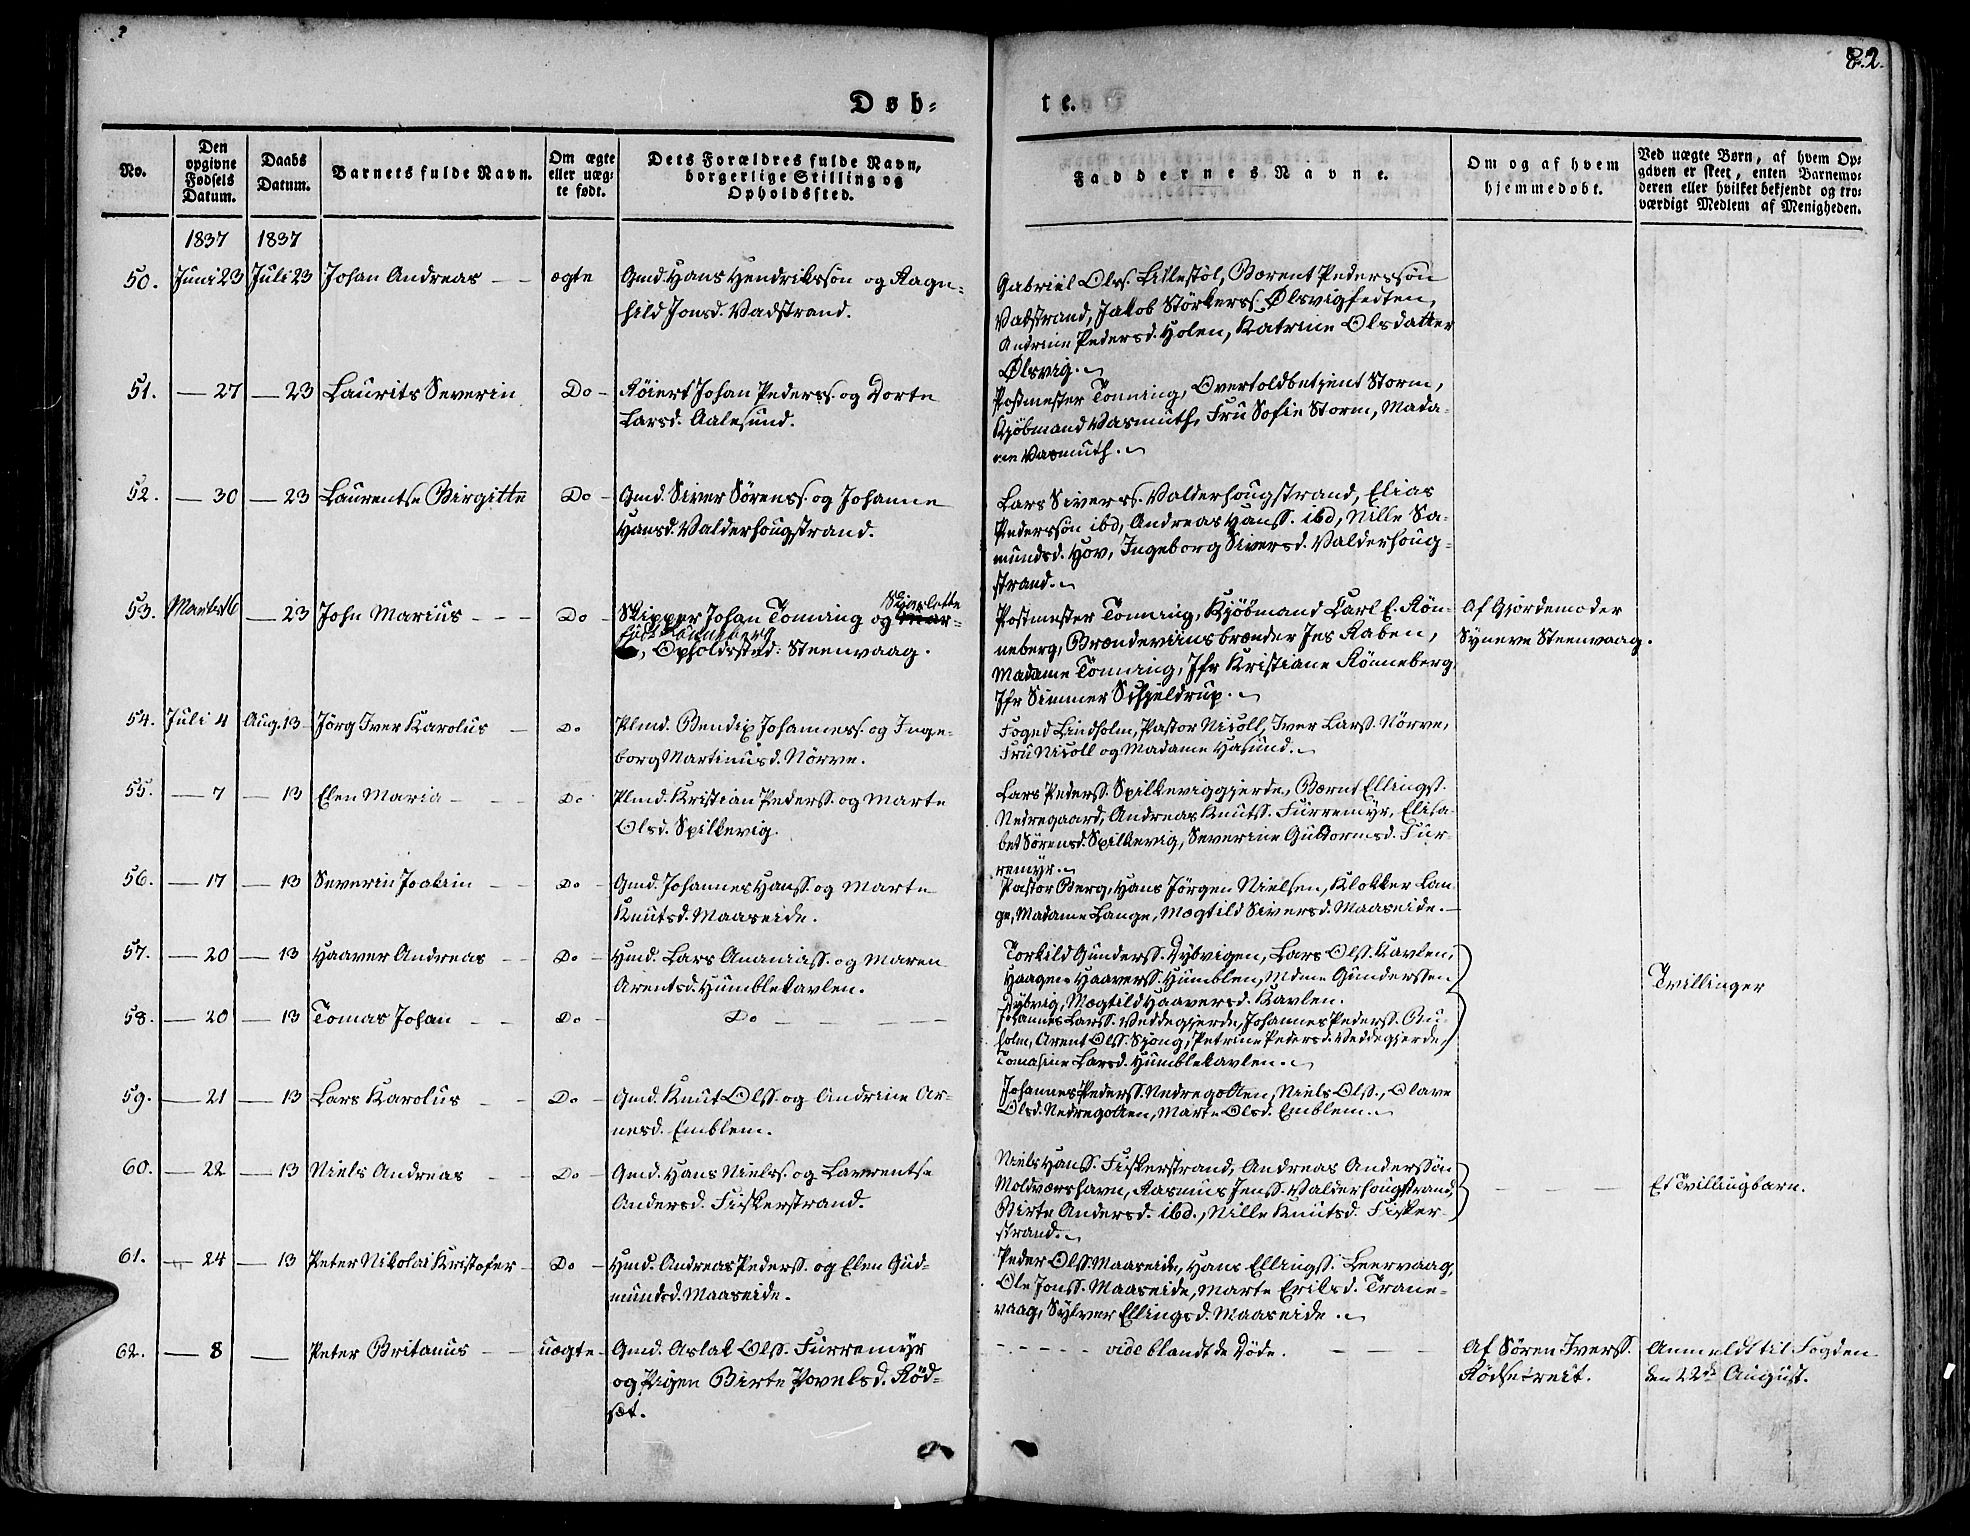 82.
Døb-
te.
No.
Den opgivne Fødsels Datum.
Daabs Datum.
Barnets fulde Navn.
Om ægte eller uæg-
te født.
Dets Forældres fulde Navn, borgerlige Stilling og Opholdssted.
Faddernes Navne.
Om og af hvem hjemmedøbt.
Ved uægte Børn, af hvem Op-
gaven er skeet, enten Barnemo-
deren eller hvilket bekjendt og tro-
værdigt Medlem af Menigheden.
1837 1837
50. Juni 23 Juli 23 Johan Andreas — — ægte
Gmd. Hans Hendrikssøn og Ragn-
hild Jonsd. Vadstrand.
Gabriel Olss. Lillestøl, Bærent Pederssøn
Vadstrand, Jakob Størkerss. Ølsvigfedten,
Andrine Pedersd. Holen, Katrine Olsdatter
Ølsvig.
51. — 27 — 23 Laurits Severin Do —
Røiert Johan Pederss. og Dorte
Larsd. Aalesund.
Postmester Tønning, Overtoldbetjent Storm,
Kjøbmand Vasmuth, Fru Sofie Storm, Mada-
me Vasmuth.
52. — 30 — 23 Laurentse Birgitte Do —
Gmd. Siver Sørenss. og Johanne
Hansd. Valderhougstrand.
Lars Siverss. Valderhougstrand, Elias
Pederssøn ibd, Andreas Hanss. ibd, Nille Sa-
mundsd. Hov, Ingeborg Siversd. Valderhoug-
strand.
53. Marts 16 — 23 John Marius — — — Do —
Skipper Johan Tønning og
Opholdssted: Steenvaag.
Postmester Tønning, Kjøbmand Carl E. Røn-
neberg, Brændeviinsbrænder Jes Raben,
Madame Tønning, Jfr Kristiane Rønneberg
Jfr Simmer Schjeldrup.
Af Gjordemoder
Synneve Steenvaag.
54. Juli 4 Aug. 13 Jørg Iver Karolus — Do
Plmd. Bendix Johanness. og Inge-
borg Martinusd. Nørve.
Foged Lindholm, Pastor Nicoll, Iver Larss. Nørve,
Fru Nicoll og Madame Hasund.
55. — 7 — 13 Elen Maria — — Do
Plmd. Kristian Pederss. og Marte
Olsd. Spilkevig.
Lars Pederss. Spilkeviggjerde, Bærnt Ellingss.
Nedregaard, Andreas Knutss. Furremyr, Elisa-
bet Sørensd. Spilkevig, Severine Guttormsd. Fur-
remyr.
56. — 17 — 13 Severin Joakin — — Do —
Gmd. Johannes Hanss. og Marte
Knutsd. Maaseide.
Pastor Berg, Hans Jørgen Nielsen, Klokker Lan-
ge, Madame Lange, Mægtild Siversd. Maaseide.—
57. — 20 — 13 Haaver Andreas — — Do —
Hmd. Lars Ananiass. og Maren
Arentsd. Humblekavlen.
Torkild Gunderss. Dybvigen, Lars Olss. Kavlen,
Haagen Haaverss. Humblen, Mdme Gunderssen
Dybvig, Mægtild Haaversd. Kavlen.
Tvillinger
58. — 20 — 13 Tomas Johan — — Do —
Do — — — —
Johannes Larss. Veddegjerde, Johannes Pederss. Bu-
holm, Arent Olss. Sjong, Petrine Pedersd. Veddegjerde,
Tomasine Larsd. Humblekavlen.
59. — 21 — 13 Lars Karolus — — Do —
Gmd. Knut Olss. og Andrine Ar-
nesd. Emblem.
Johannes Pederss. Nedregotten, Niels Olss., Olave
Olsd. Nedregotten, Marte Olsd. Emblem.
60. — 22 — 13 Niels Andreas — — Do —
Gmd. Hans Nielss. og Lavrentse
Andersd. Fiskerstrand.
Niels Hanss. Fiskerstrand, Andreas Anderssøn
Moldværshavn, Rasmus Jenss. Valderhougstrand,
Birte Andersd. ibd., Nille Knutsd. Fisker-
strand.
— — —
Et Tvillingbarn.
61. — 24 — 13 Peter Nikolai Kristofer — Do —
Hmd. Andreas Pederss. og Elen Gud-
mundsd. Maaseide.
Peder Olss. Maaseide, Hans Ellingss. Leervaag,
Ole Jonss. Maaseide, Marte Eriksd. Trane-
vaag, Sylver Ellingsd. Maaseide.
62. — 8 — Peter Britanus — — uægte —
Gmd. Aslak Olss. Furremyr
og Pigen Birte Povelsd. Rød-
sæt.
— — — — vide blandt de Døde. — — —
Af Søren Iverss.
Rødsetreit.
Anmeldt til Fogden
den 22de August.